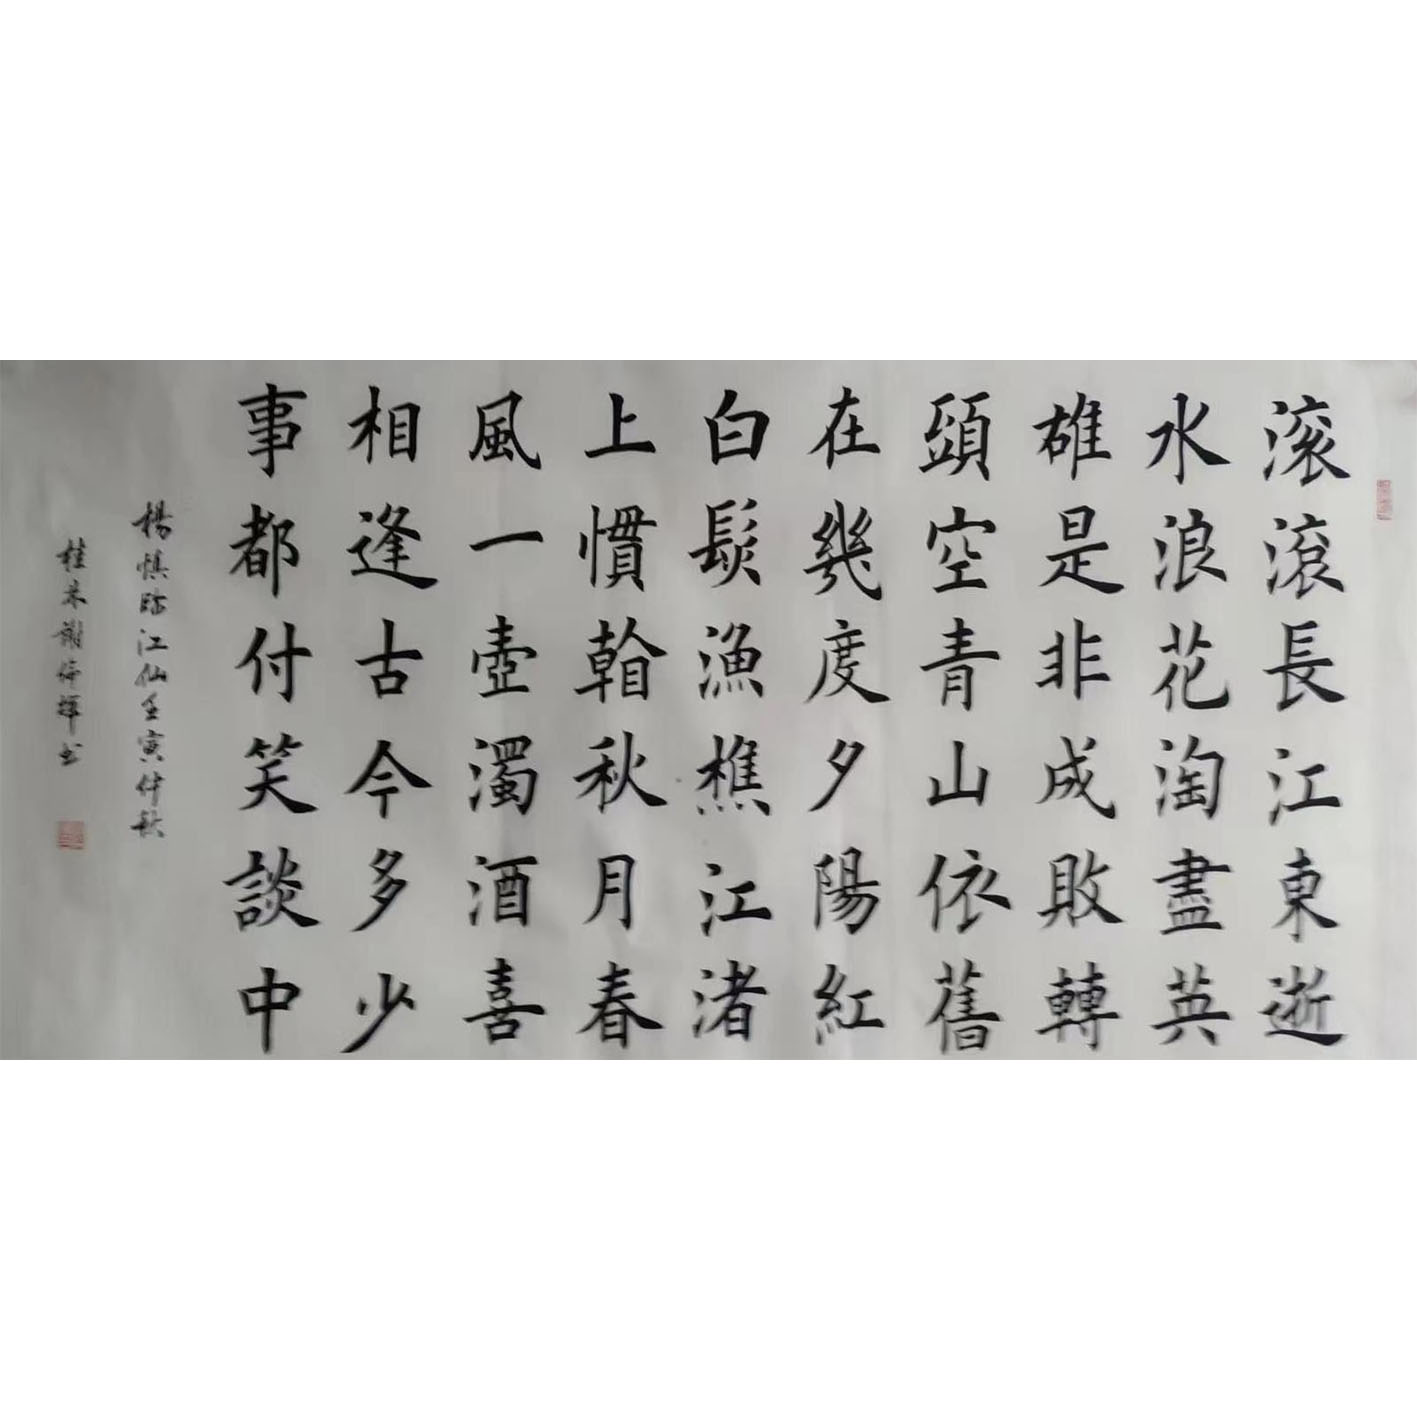 滚滚長江東逝
水浪花淘盡英
雄是非成敗轉
頭空青山依舊
在幾度夕陽紅
白髮漁樵江渚
上慣看秋月春
風一壺濁酒喜
相逢古今多少
事都付笑談中
楊慎臨江仙壬寅仲秋
桂林謝 輝書